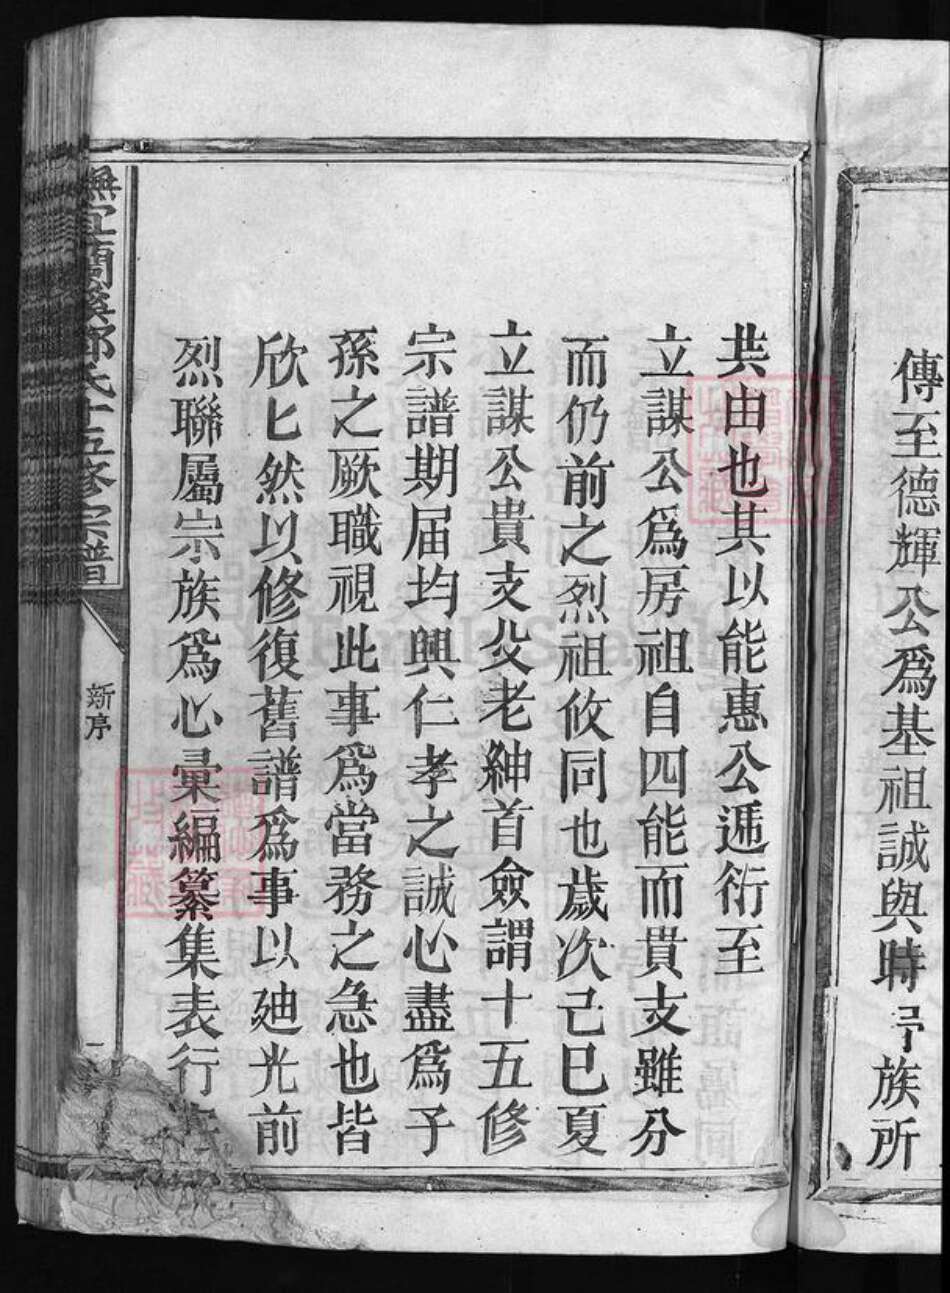 傳至德輝公爲基祖誠與時吾族所
共由也其以能惠公遞衍至
立謀公爲房祖自四能而貴支雖分
而仍前之烈祖攸同也歲次己巳夏
立謀公貴支父老紳首僉謂十五修
宗譜期届均興仁孝之誠心盡爲子
孫之厥職視此事爲當務之急也皆
欣匕然以修復舊譜爲事以廸光前
烈聯屬宗族爲心彙編纂集表行
宜蘭溪鄧氏十五修宗譜
新序